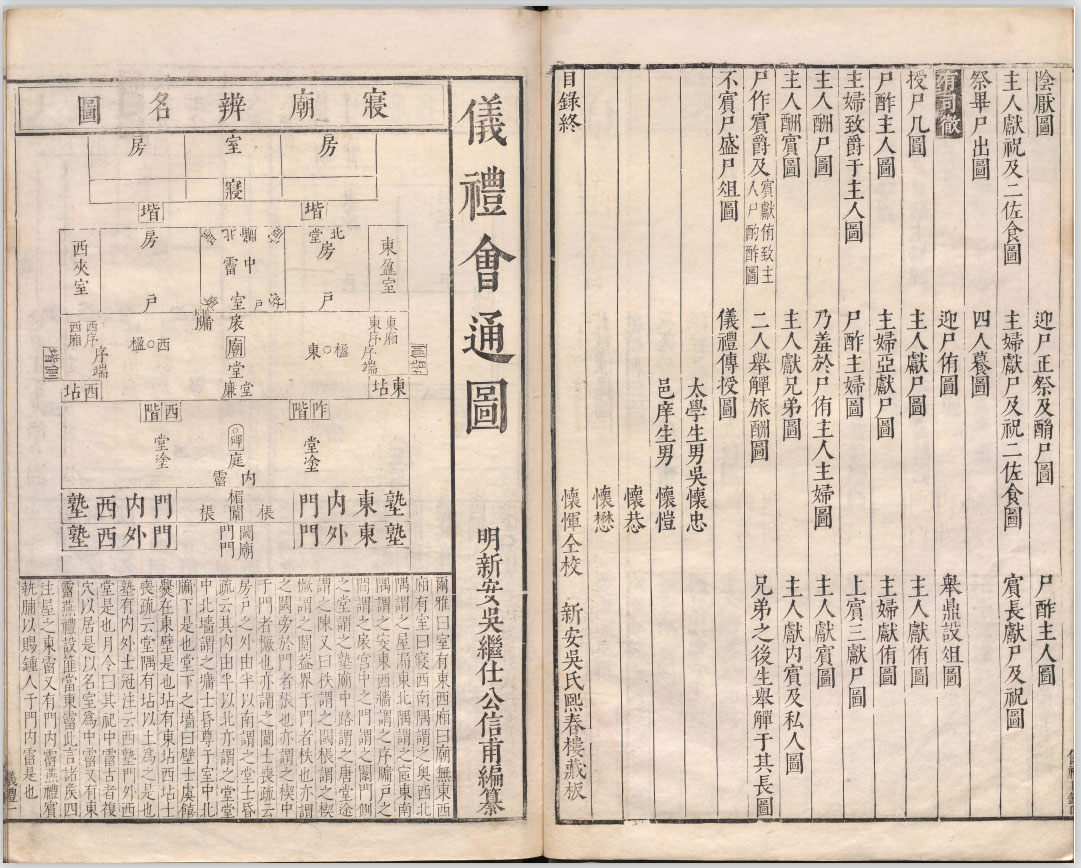 陰厭圖
迎尸正祭及酳尸圖
尸酢主人圖
主人獻祝及二佐食圖
主婦獻尸及祝二佐食圖
賓長獻尸及祝圖
祭畢尸出圖
四人餕圖
有司徹
迎尸侑圖
舉鼎設俎圖
授尸几圖
主人獻尸圖
主人獻侑圖
尸酢主人圖
主婦亞獻尸圖
主婦獻侑圖
主婦致爵于主人圖
尸酢主婦圖
上賓三獻尸圖
主人酬尸圖
乃羞於尸侑主人主婦圖
主人獻賓圖
主人酬賓圖
主人獻兄弟圖
主人獻內賓及私人圖
尸作賓爵及賓獻侑致主人尸酌酢圖
二人舉觶旅酬圖
兄弟之後生舉觶于其長圖
不賓尸盛尸俎圖
儀禮傳授圖
太學生男吳懷忠
邑庠生男 懷愷
懷恭
懷懋
懷惲仝校
新安吳氏熙春樓藏板
目錄終
儀禮會通圖
明新安吳繼仕公信甫編纂
寢廟辨名圖
房 室 房
寢
堦 堦
北堂 房 戶
東夾室
中霤
室
房 戶
西夾室
牖
扆
廟
堂
堂廉
東廂
東序
序端
東 楹
東坫
西廂
西序
序端
楹 西
西坫
阼階
西階
碑
庭
堂塗
堂塗
內霤
門內東塾
門外東塾
塾西內門
塾西外門
棖 闑 棖
廟門
爾雅曰室有東西廂曰廟無東西
廂有室曰寢西南隅謂之奧西北
隅謂之屋漏東北隅謂之宧東南
隅謂之窔東西牆謂之序牖戶之
間謂之扆宮中之門謂之闈門側
之堂謂之塾廟中路謂之唐堂途
謂之陳又曰柣謂之閾棖謂之楔
橛謂之闑蓋界于門者柣也亦謂
之閾旁於門者棖也亦謂之楔中
于門者橛也亦謂之闑士喪疏云
房戶之外由半以南謂之堂士昏
疏云其內由半以北亦謂之堂堂
中北墻謂之墉士昏尊于室中北
墉下是也堂下之墻曰壁士虞饎
爨在東壁是也坫有東坫西坫士
喪疏云堂隅有坫以土為之是也
塾有內外士冠注云西塾門外西
堂是也月令曰其祀中霤古者複
穴以居是以名室為中霤又有東
霤燕禮設篚當東霤此言諸矦四
注屋之東霤又有門內霤燕禮賓
執脯以賜鍾人于門內霤是也
儀禮